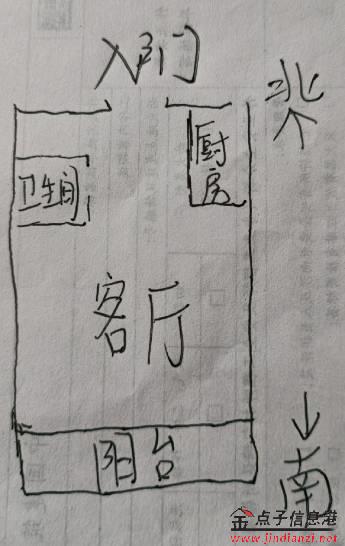 入门
北
厨房
卫生间
客厅
阳台
南
金点子信息港
www.jindianzi.net